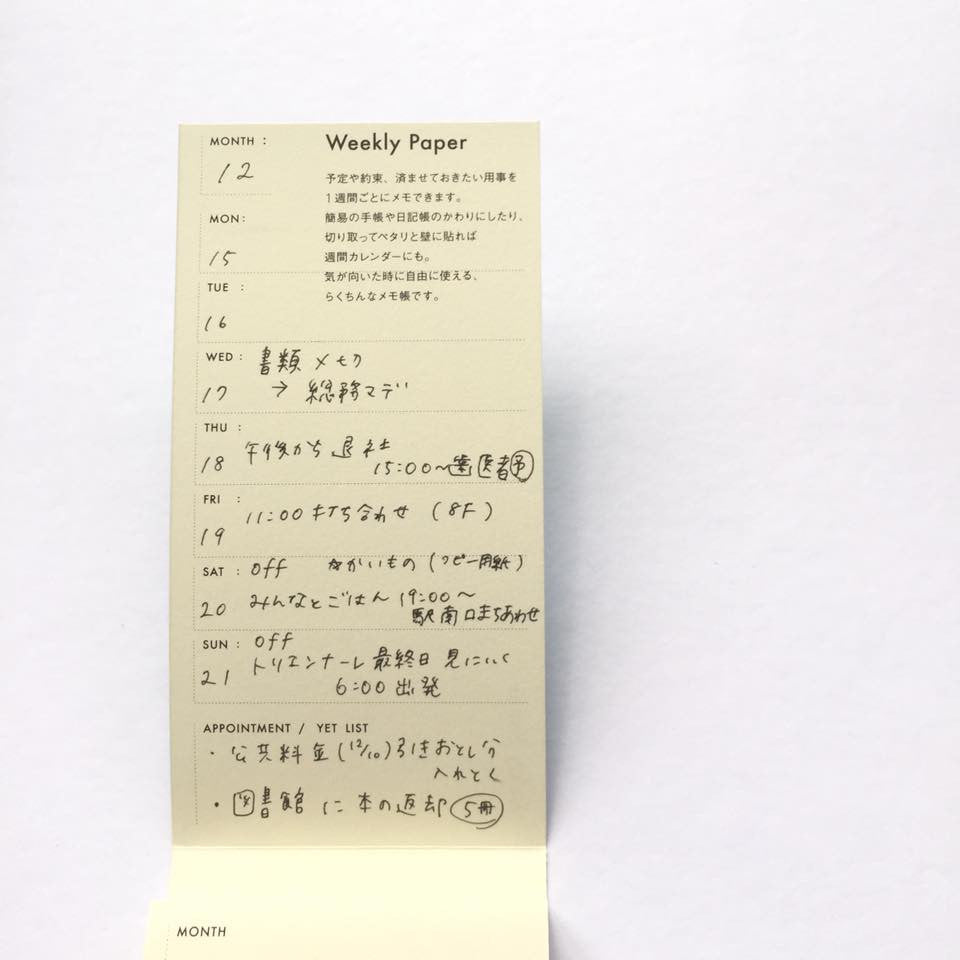 MONTH :
12
Weekly Paper
予定や約束、済ませておきたい用事を
1週間ごとにメモできます。
簡易の手帳や日記帳のかわりにしたり、
切り取ってペタリと壁に貼れば
週間カレンダーにも。
気が向いた時に自由に使える、
らくちんなメモ帳です。
MON:
15
TUE :
16
WED : 書類 〆切
17 → 総務マデ
THU :
18 午後から退社
15:00~歯医者予
FRI :
19 11:00 打ち合わせ (8F)
SAT : Off かいもの (コピー用紙)
20 みんなとごはん 19:00~
駅南口まちあわせ
SUN : Off
21 トリエンナーレ最終日 見にいく
6:00 出発
APPOINTMENT / YET LIST
・公共料金(12/10)引きおとし分
入れとく
・図書館に本の返却 5冊
MONTH